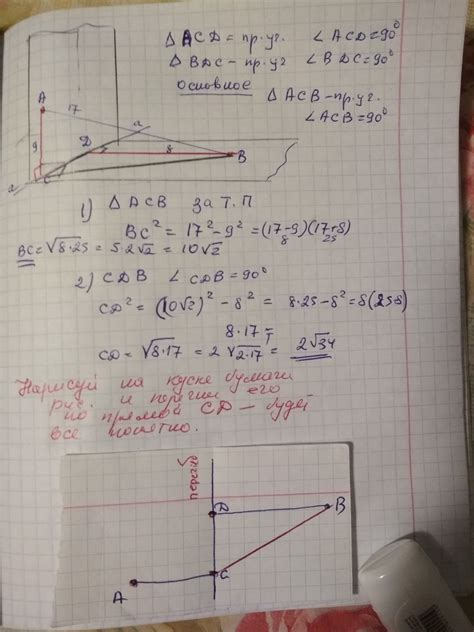 △ ACD = пр.уг. ∠ ACD = 90°
△ BDC – пр.уг ∠ BDC = 90°
основное
△ ACB – пр.уг.
∠ ACB = 90°
A
17
a
9
D
8
B
a
C
1) △ ACB за Т.П
BC² = 17² - 9² = (17-9)(17+8)
8 25
BC = √8·25 = 5·2√2 = 10√2
2) CDB ∠ CDB = 90°
CD² = (10√2)² - 8² = 8·25 - 8² = 8(25-8)
8·17 =
CD = √8·17 = 2√2·17 = 2√34
Нарисуй на куске бумаги
рис. и перегни его
по прямой CD – будет
все понятно.
перегиб
D
B
C
A